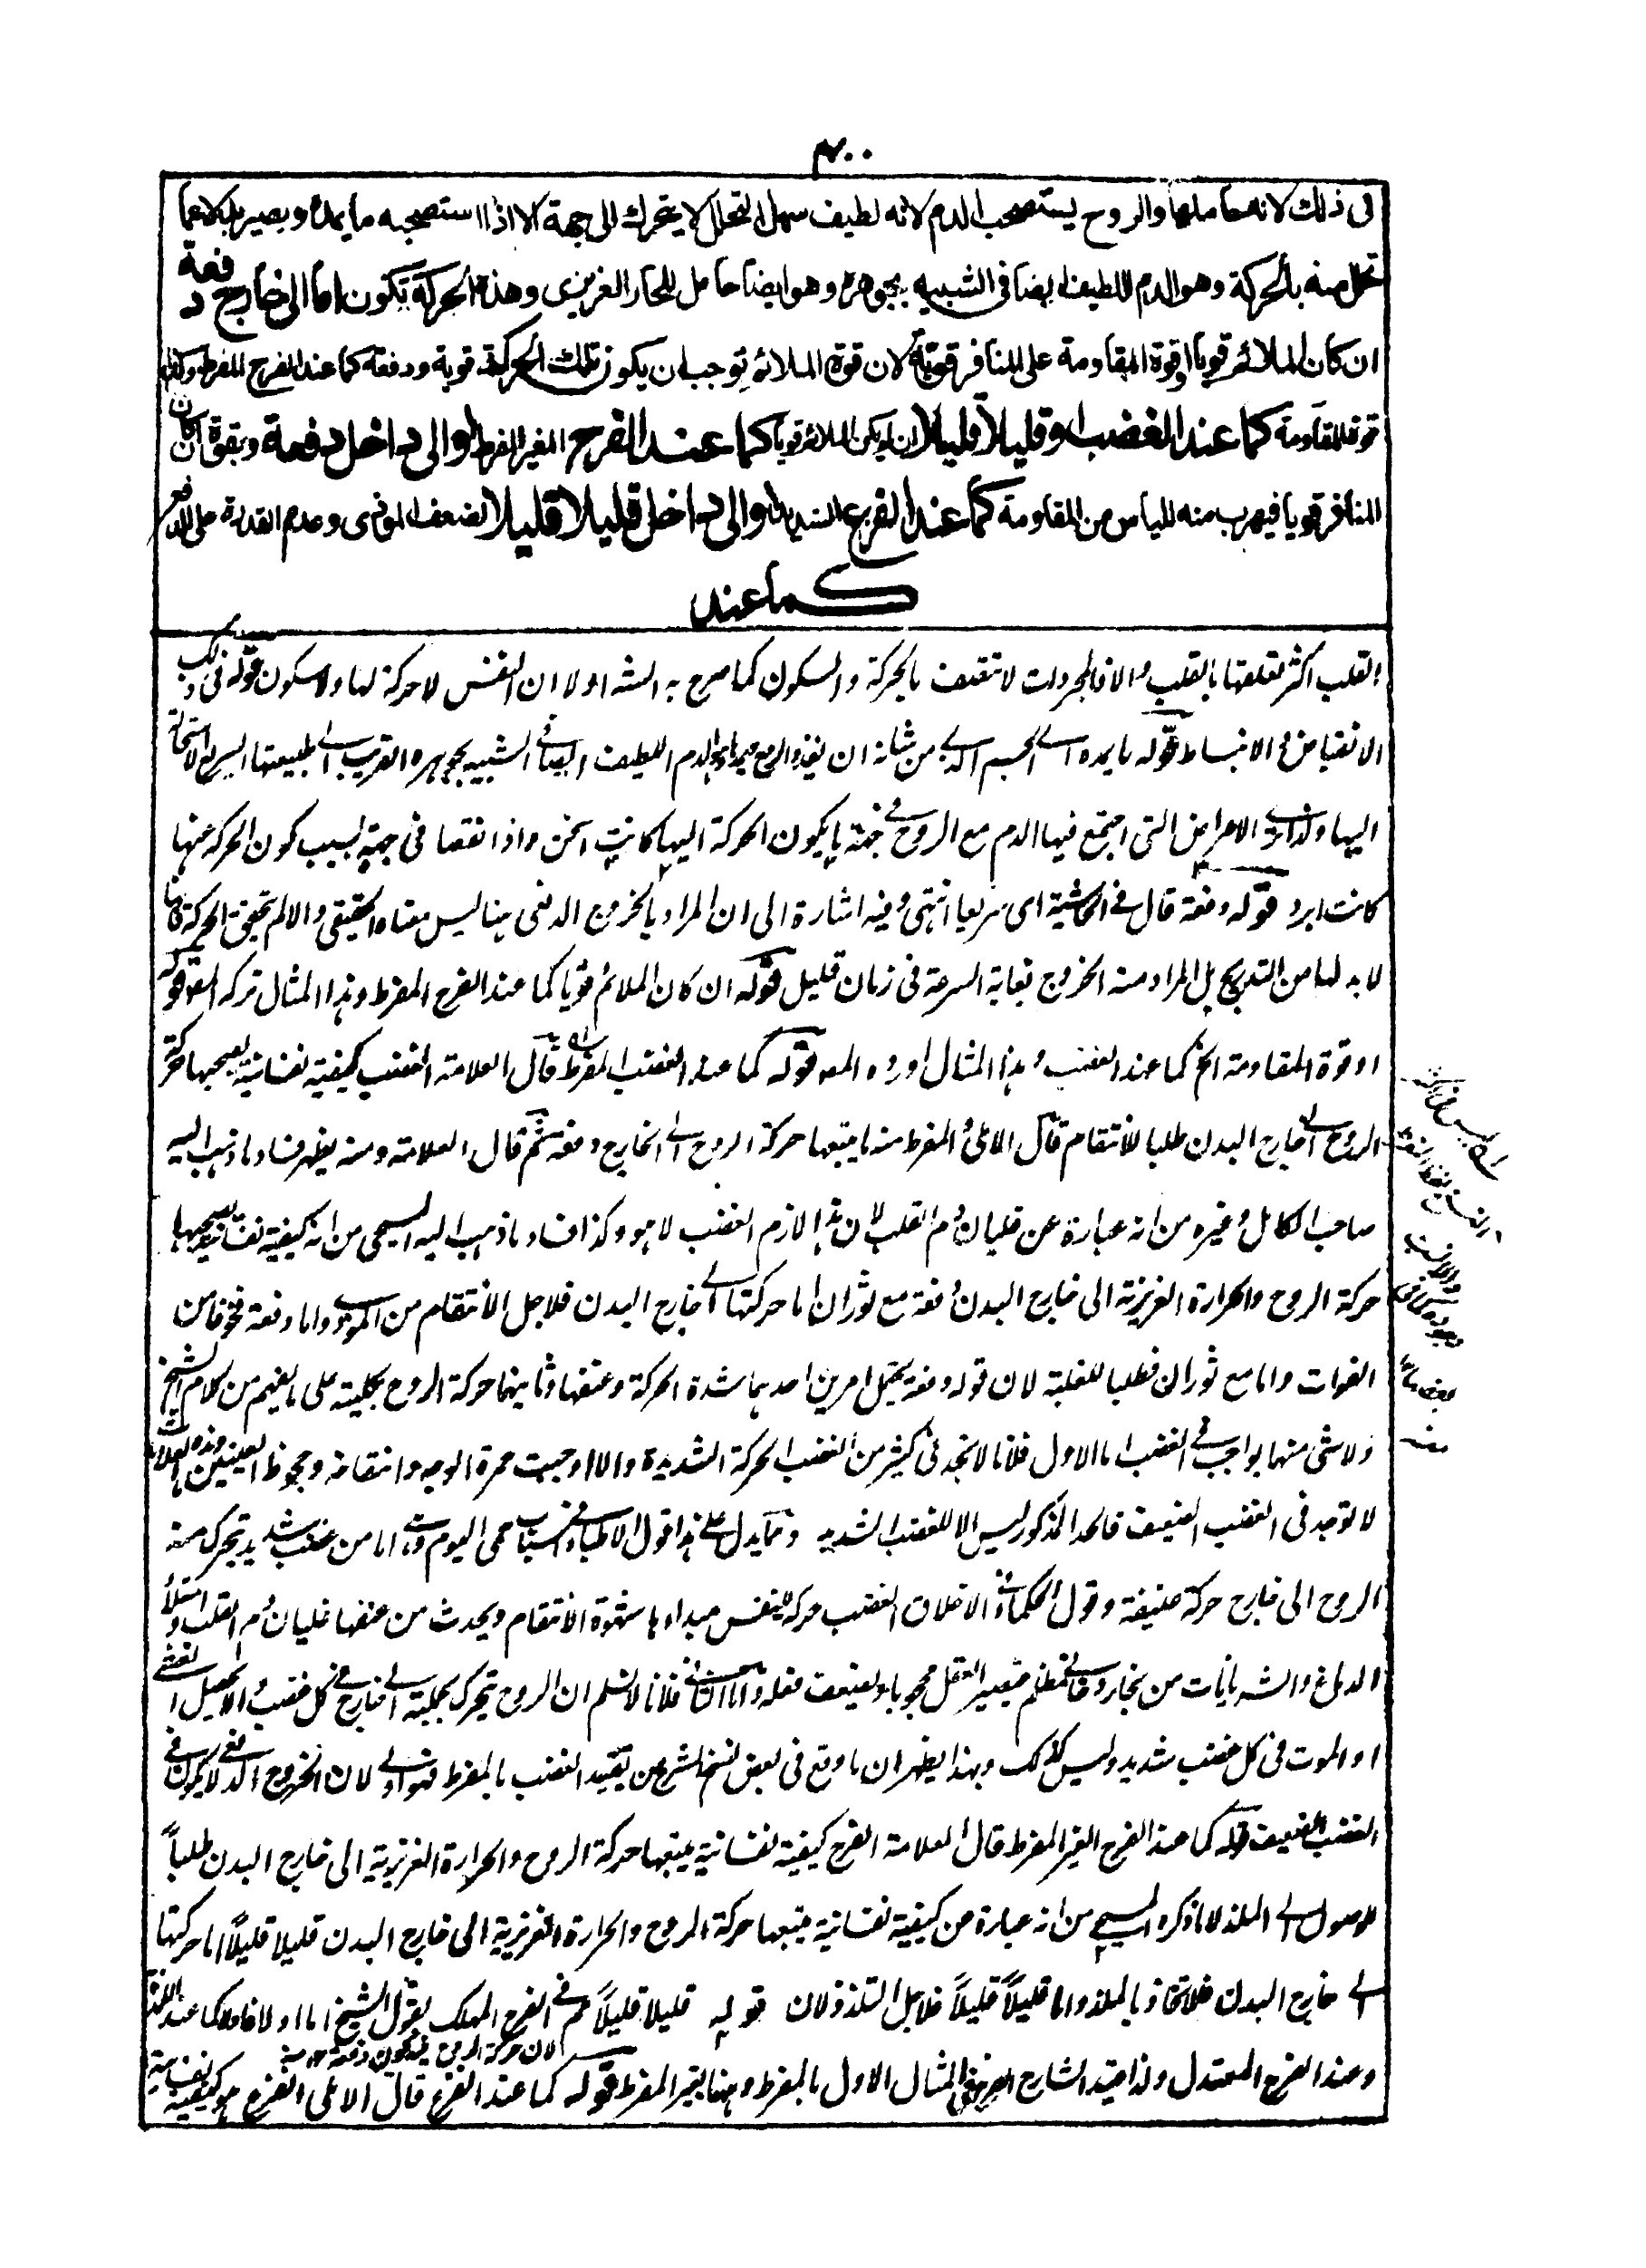 ٤٠٠
فى ذلك لانه حاملها والروح يستصحب الدم لانه لطيف سهل التحلل لا يتحرك الى جهة الا اذا استصحبه ما يمده ويصير بدلا عما
تحلل منه بالحركة وهو الدم اللطيف ايضا فى الشبيه بجوهره وهو ايضا حامل للحار الغريزى وهذه الحركة تكون اما الى خارج دفعة
ان كان الملائم قويا او قوة المقاومة على المنافر قوية لان قوة الملائم توجب ان يكون تلك الحركة قوية ودفعة كما عند الفرح المفرط وكذلك
قوة المقاومة كما عند الغضب او قليلا قليلا ان لم يكن الملائم قويا كما عند الفرح الغير المفرط او الى داخل دفعة وبقوة ان كان
المنافر قويا فيهرب منه لليأس من المقاومة كما عند الفزع الشديد او الى داخل قليلا قليلا لضعف الموذى وعدم القدرة على الدفع
كما عند
القلب اكثر تعلقها بالقلب والا فالمجردات لا تتصف بالحركة والسكون كما صرح به الشه اولا ان النفس لا حركة لها ولا سكون قوله فى ذلك
الانقباض او الانبساط قوله ما يمده اے الجسم الذے من شانه ان يغذو الروح الدم اللطيف ايضا فے الشبيه بجوهره القريب اے طبيعتها السريع الاستحالة
اليها ولذا الاعراض التى اجتمع فيها الدم مع الروح فے جهة ما يكون الحركة اليها كانت اسخن واذا نقصا فى جهة بسبب كون الحركة عنها
كانت ابرد قوله دفعة قال فے الحاشية اى سريعا انتهى وفيه اشارة الى ان المراد بالخروج الدفعى ههنا ليس معناه الحقيقى والا لم يتحقق الحركة فانها
لا بد لها من التدريج بل المراد منه الخروج بغاية السرعة فى زمان قليل قوله ان كان الملائم قويا كما عند الفرح المفرط وهذا المثال تركه المصه قوله
او قوة المقاومة الخ كما عند الغضب وهذا المثال اورده المصه قوله كما عند الغضب المفرط قال العلامة الغضب كيفية نفسانية يصحبها حركة
الروح الے خارج البدن طلبا للانتقام قال الاملى المفرط منه ما يتبعها حركة الروح الے الخارج دفعة ثم قال العلامة ومنه يظهر فساد ما ذهب اليه
صاحب الكامل وغيره من انه عبارة عن غليان دم القلب لان هذا لازم الغضب لا هو وكذا فساد ما ذهب اليه المسيحى من انه كيفية نفسانية يصحبها
حركة الروح والحرارة الغريزية الى خارج البدن دفعة مع ثوران اما حركتها الے خارج البدن فلاجل الانتقام من الموذى واما دفعة فخوفا من
الفوات واما مع ثوران فطلبا للغلبة لان قوله دفعة يحتمل امرين احدهما شدة الحركة وعنفها وثانيهما حركة الروح بكليته على ما يفهم من كلام الشيخ
ولا شى منهما بواجب فے الغضب اما الاول فلانا لا نجد فى كثير من الغضب الحركة الشديدة والا لاوجبت حمرة الوجه وانتفاخه وجحوظ العينين وهذه العلامات
لا توجد فى الغضب الضعيف فالحد المذكور ليس الا للغضب الشديد ومما يدل علے هذا قول الاطباء فے اسباب حمى اليوم واما من غضب شديد يتحرك منه
الروح الى خارج حركة عنيفة وقول الحكماء فے الاخلاق الغضب حركة للنفس مبدأها شهوة الانتقام ويحدث من عنفها غليان دم القلب وامتلأ
الدماغ والشريانات من بخار دخانى مظلم فيصير العقل محجوبا ويضعف فعله واما الثانى فلانا لا نسلم ان الروح يتحرك بكليته الے خارج فے كل غضب والا لحصل الغشے
او الموت فى كل غضب شديد وليس كذلك وبهذا يظهر ان ما وقع فى بعض نسخ الشرح من تقييد الغضب بالمفرط فهو اولے لان الخروج الدفعى لا يكون فے
الغضب الضعيف قوله كما عند الفرح الغير المفرط قال العلامة الفرح كيفية نفسانية يتبعها حركة الروح والحرارة الغريزية الى خارج البدن طلبا
للوصول الے الملذ لا ما ذكره المسيحے من انه عبارة عن كيفية نفسانية يتبعها حركة الروح والحرارة الغريزية الى خارج البدن قليلا قليلا اما حركتها
الے خارج البدن فللاتحاد بالملذ واما قليلا قليلا فلاجل التلذذ لان قوله قليلا قليلا فى الفرح المهلك يقول الشيخ اما اولا فكما عند
وعند الفرح المعتدل ولذا قيد الشارح المثال الاول بالمفرط وههنا بغير المفرط قوله كما عند الفزع قال الاملى الفزع هو كيفية نفسانية
لان حركة الروح فيه تكون دفعة منه